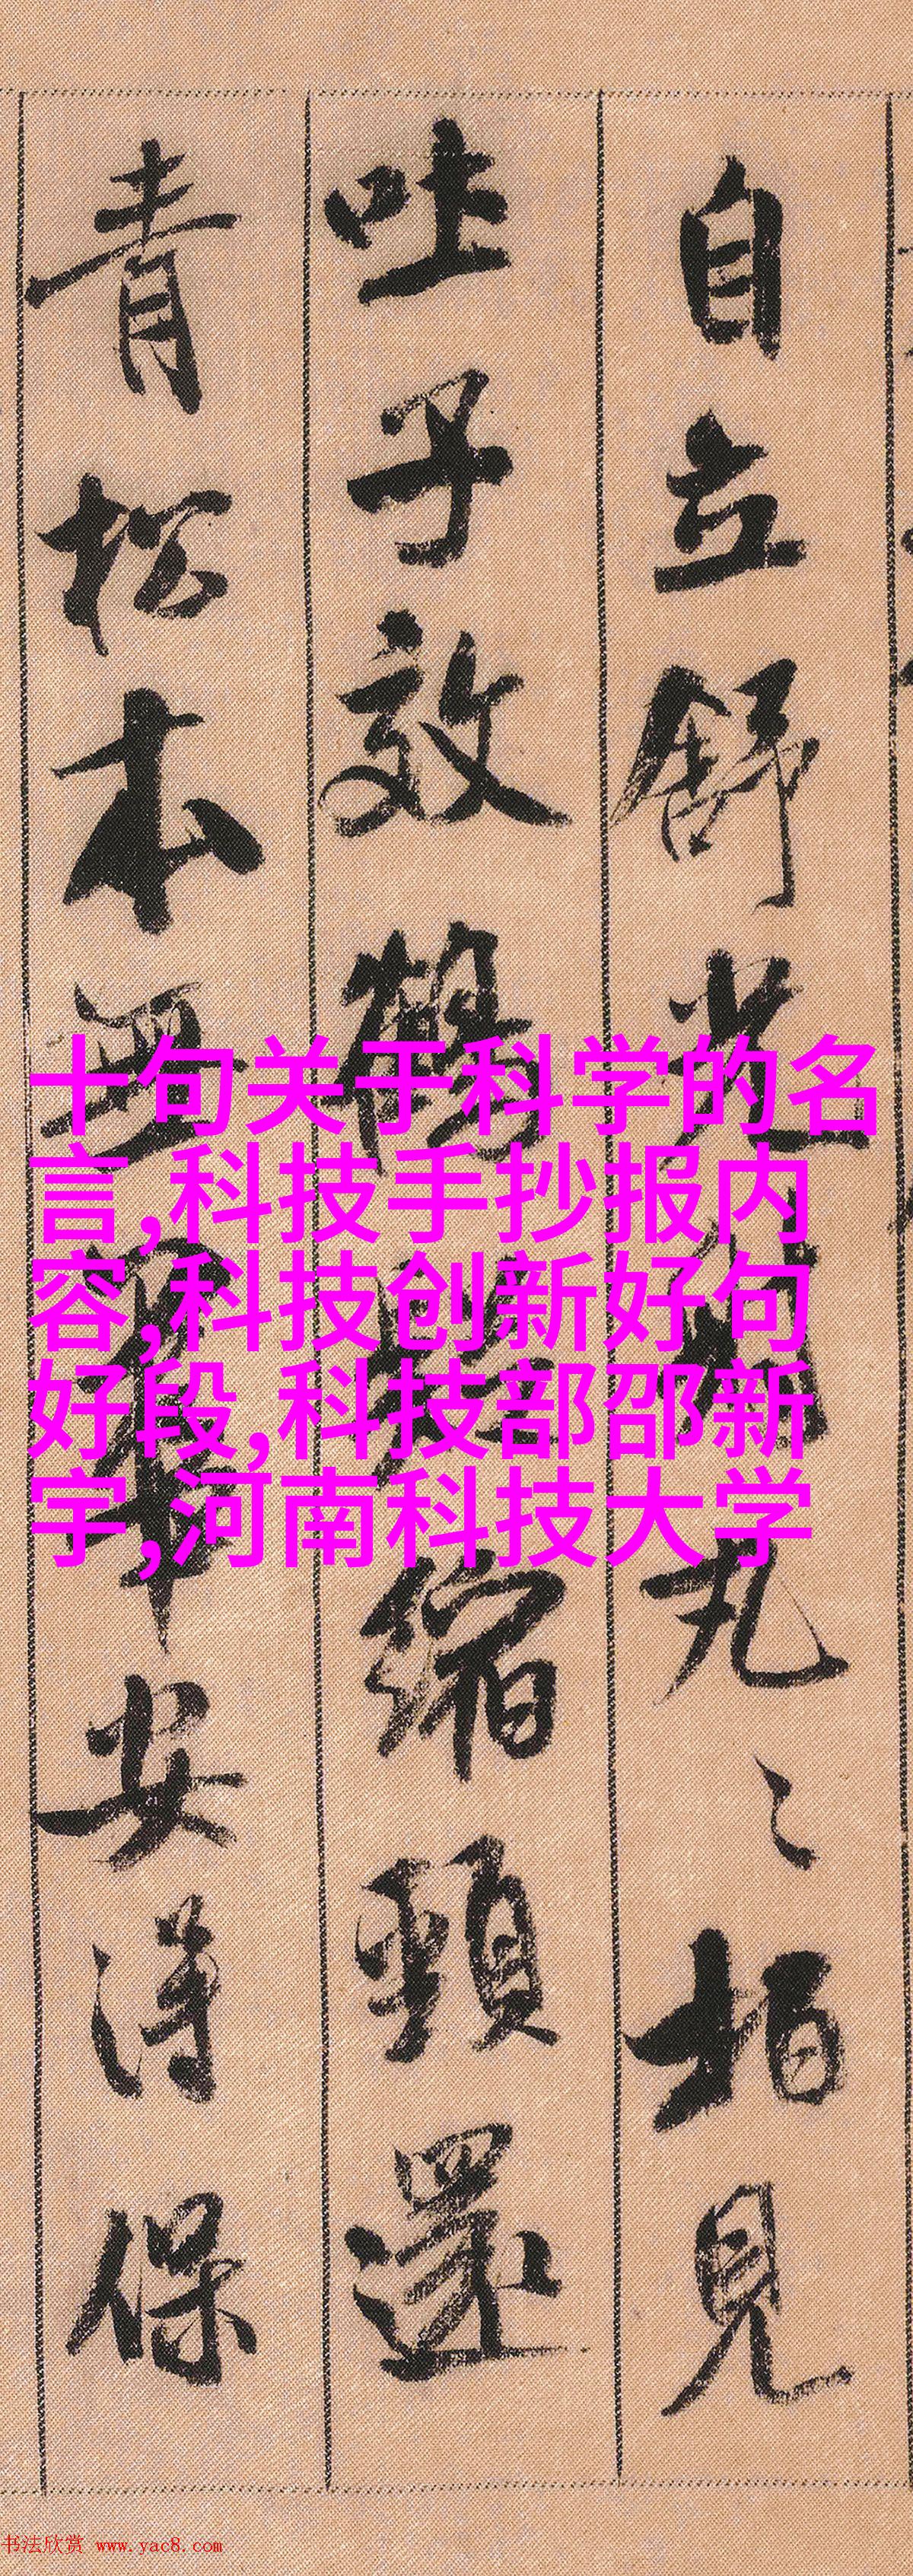 自立舒光丸〻柏見
吐子效鶴縮頸還
青松本無華安得保
十句关于科学的名
言,科技手抄报内
容,科技创新好句
好段,科技部邵新
宇,河南科技大学
书法欣赏 www.yac8.com